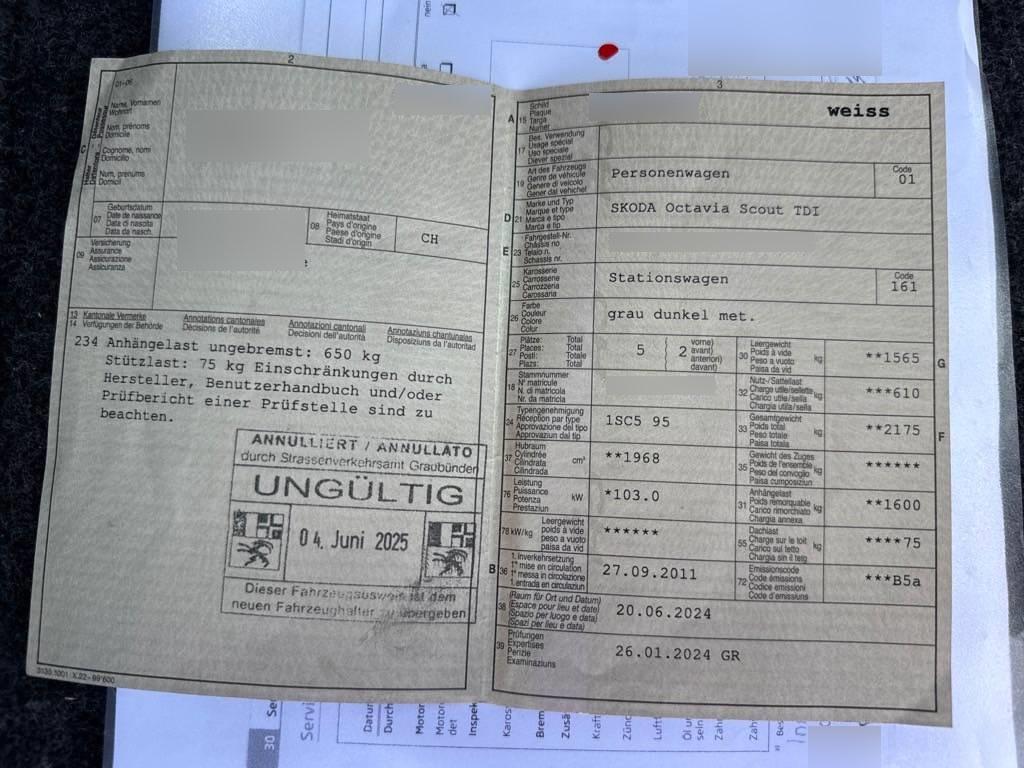 nein
2
01-06
C
Halter
Name, Vornamen
Wohnort
Nom, prénoms
Domicile
Cognome, nomi
Domicilio
Num, prenums
Domicil
07
Geburtsdatum
Date de naissance
Data di nascita
Data da nasch.
08
Heimatstaat
Pays d'origine
Paese d'origine
Stadi d'origin
CH
09
Versicherung
Assurance
Assicurazione
Assicuranza
13 Kantonale Vermerke
14 Verfügungen der Behörde
Annotations cantonales
Décisions de l'autorité
Annotazioni cantonali
Decisioni dell'autorità
Annotaziuns chantunalas
Disposiziuns da l'autoritad
234 Anhängelast ungebremst: 650 kg
Stützlast: 75 kg Einschränkungen durch
Hersteller, Benutzerhandbuch und/oder
Prüfbericht einer Prüfstelle sind zu
beachten.
ANNULLIERT / ANNULLATO
durch Strassenverkehrsamt Graubünden
UNGÜLTIG
04. Juni 2025
Dieser Fahrzeugausweis ist dem
neuen Fahrzeughalter zu übergeben
3
A 15
Schild
Plaque
Targa
Numer
weiss
17
Bes. Verwendung
Usage spécial
Uso speciale
Diever spezial
19
Art des Fahrzeugs
Genre de véhicule
Genere di veicolo
Gener dal vehichel
Personenwagen
Code
01
D 21
Marke und Typ
Marque et type
Marca e tipo
Marca e tip
SKODA Octavia Scout TDI
E 23
Fahrgestell-Nr.
Châssis no
Telaio n.
Schassis nr.
25
Karosserie
Carrosserie
Carrozzeria
Carossaria
Stationswagen
Code
161
26
Farbe
Couleur
Colore
Colur
grau dunkel met.
27
Plätze: Total
Places: Total
Posti: Totale
Plazs: Total
5
2
vorne)
avant)
anteriori)
davant)
30
Leergewicht
Poids à vide
Peso a vuoto
Paisa da vid
kg
**1565
G
18
Stammnummer
N° matricule
N. di matricola
Nr. da matricla
32
Nutz-/Sattellast
Charge utile/sellette
Carico utile/sella
Chargia utila/sella
kg
***610
24
Typengenehmigung
Réception par type
Approvazione del tipo
Approvaziun dal tip
1SC5 95
33
Gesamtgewicht
Poids total
Peso totale
Paisa totala
kg
**2175
F
37
Hubraum
Cylindrée
Cilindrata
Cilindrada
cm³
**1968
35
Gewicht des Zuges
Poids de l'ensemble
Peso del convoglio
Paisa cumposiziun
kg
******
76
Leistung
Puissance
Potenza
Prestaziun
kW
*103.0
31
Anhängelast
Poids remorquable
Carico rimorchiato
Chargia annexa
kg
**1600
78 kW/kg
Leergewicht
poids à vide
peso a vuoto
paisa da vid
******
55
Dachlast
Charge sur le toit
Carico sul tetto
Chargia sin il tetg
kg
****75
B 36
1. Inverkehrsetzung
1re mise en circulation
1a messa in circolazione
1. entrada en circulaziun
27.09.2011
72
Emissionscode
Code émissions
Codice emissioni
Code d'emissiuns
***B5a
38
(Raum für Ort und Datum)
(Espace pour lieu et date)
(Spazio per luogo e data)
(Spazi per lieu e data)
20.06.2024
39
Prüfungen
Expertises
Perizie
Examinaziuns
26.01.2024 GR
30
Se
Servi
Datu
Durch
Motor
Motor
det
Inspek
Karos
Brem
Zusä
Kraft
Zünd
Luft
Öl u
seln
Zahn
Zah
Bes